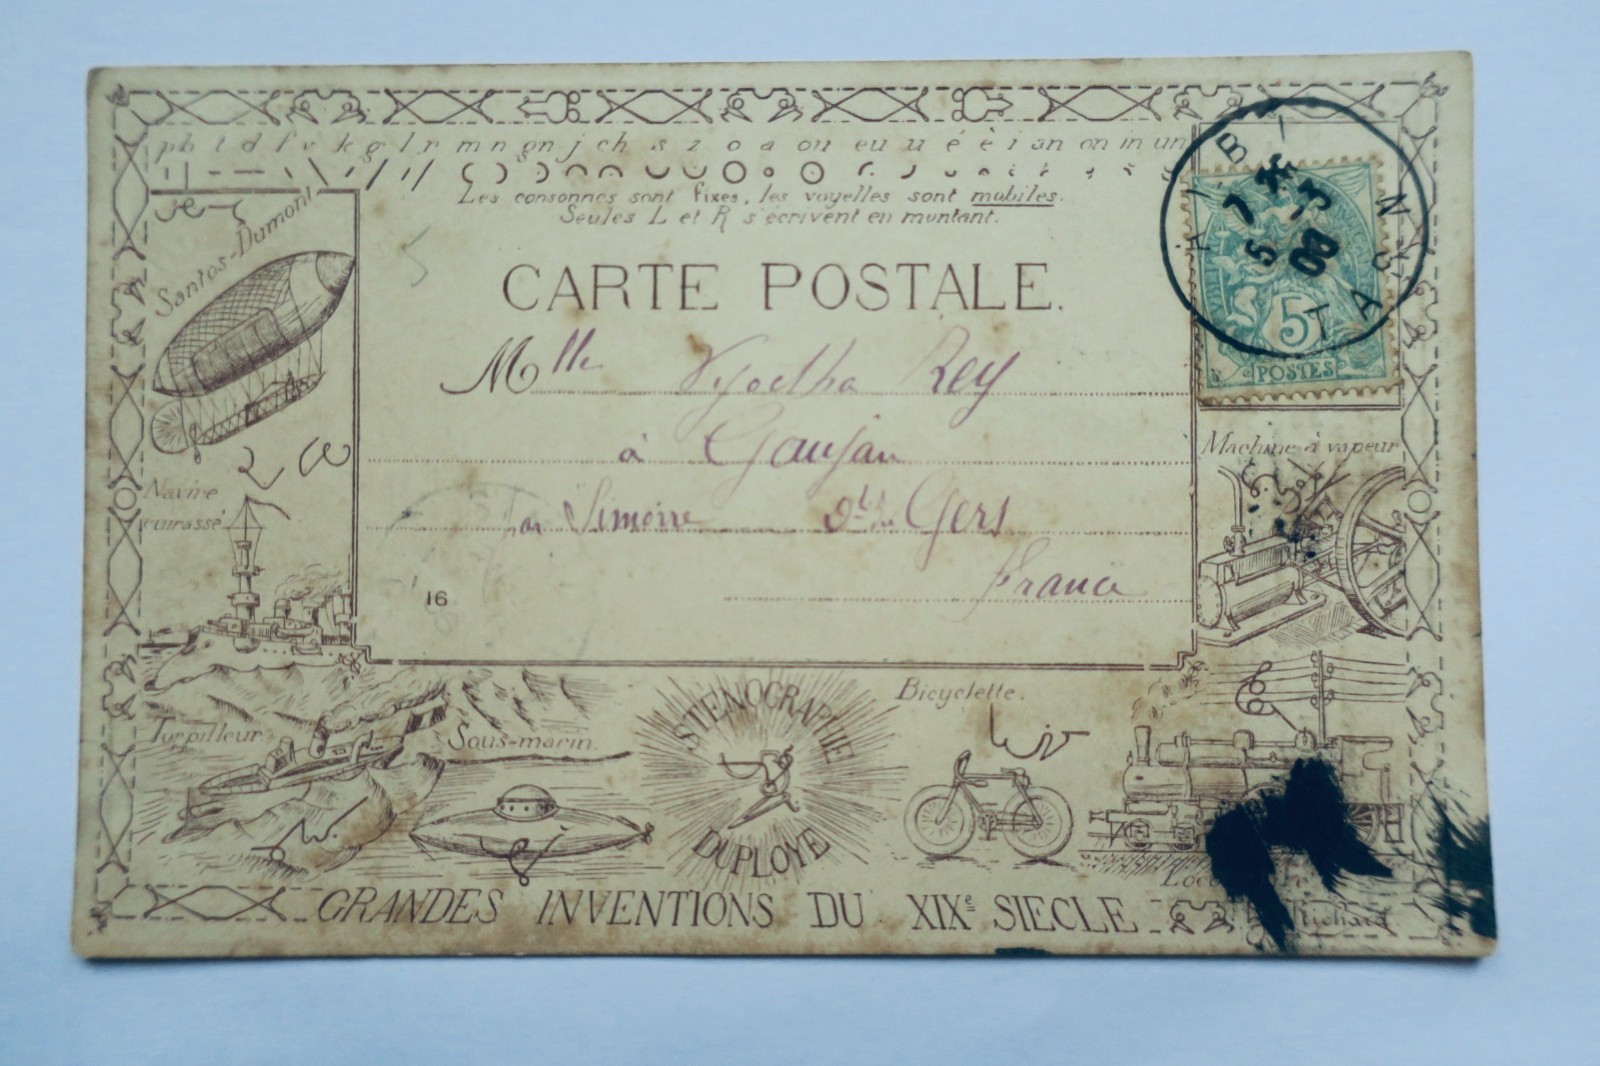 p b t d f v k g l r m n gn j ch s z o a ou eu u é è i an on in un
Les consonnes sont fixes, les voyelles sont mobiles.
Seules L et R s'écrivent en montant.
Santos-Dumont
CARTE POSTALE.
5
POSTES
5 -3
08
Mlle Rey
à Gaujan
par Simorre dt du Gers
France
16
Machine à vapeur
Navire
cuirassé
Torpilleur
Sous-marin.
STENOGRAPHIE
DUPLOYE
Bicyclette.
GRANDES INVENTIONS DU XIXe SIECLE
Richard